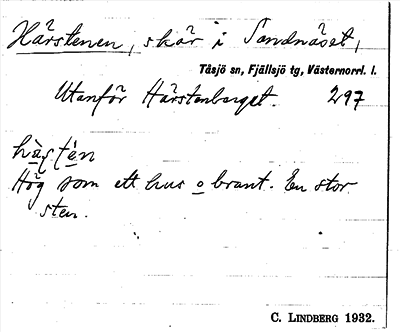 Hårstenen, skär i Sandnäset,
Tåsjö sn, Fjällsjö tg, Västernorrl. l.
Utanför Hårstenberget. 297
Hög som ett hus o brant. En stor
sten.
C. LINDBERG 1932.